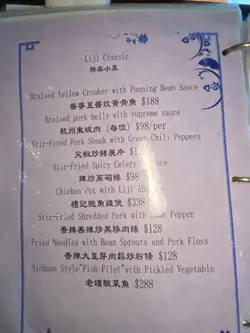 Liji Classic
精美小菜
Braised Yellow Croaker with Punning Bean Sauce
香寧豆醬炆黃骨魚 $188
Braised pork belly with supreme sauce
杭州東坡肉 (每位) $98/per
Stir-Fired Pork Shank with Green Chili Peppers
尖椒炒豬展片 $1
Stir-Fried Spicy Celery Sauce
辣炒萵筍絲 $98
Chicken Pot with Liji Ab
禮記鮑魚雞煲 $338
Stir-Fried Shredded Pork with Pepper
香辣香辣炒黑豚肉絲 $128
Fried Noodles with Bean Sprouts and Pork Floss
香辣大豆芽肉鬆炒粉條 $128
Sichuan Style"Fish Filet"with Pickled Vegetable
老壇酸菜魚 $288